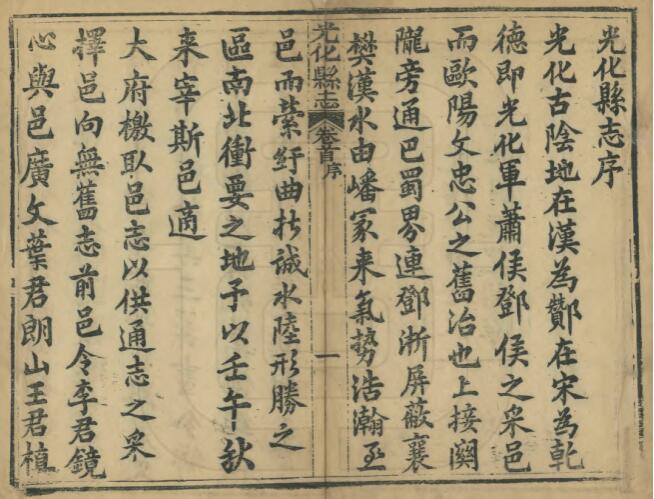 光化縣志序
光化古陰地在漢為酇在宋為乾
德即光化軍蕭侯鄧侯之采邑
而歐陽文忠公之舊治也上接關
隴旁通巴蜀界連鄧淅屏蔽襄
樊漢水由嶓冢来氣勢浩瀚至
光化縣志 卷首序 一
邑而縈紆曲折誠水陸形勝之
區南北衝要之地予以壬午秋
来宰斯邑適
大府檄取邑志以供通志之采
擇邑向無舊志前邑令李君鏡
心與邑廣文葉君朗山王君植